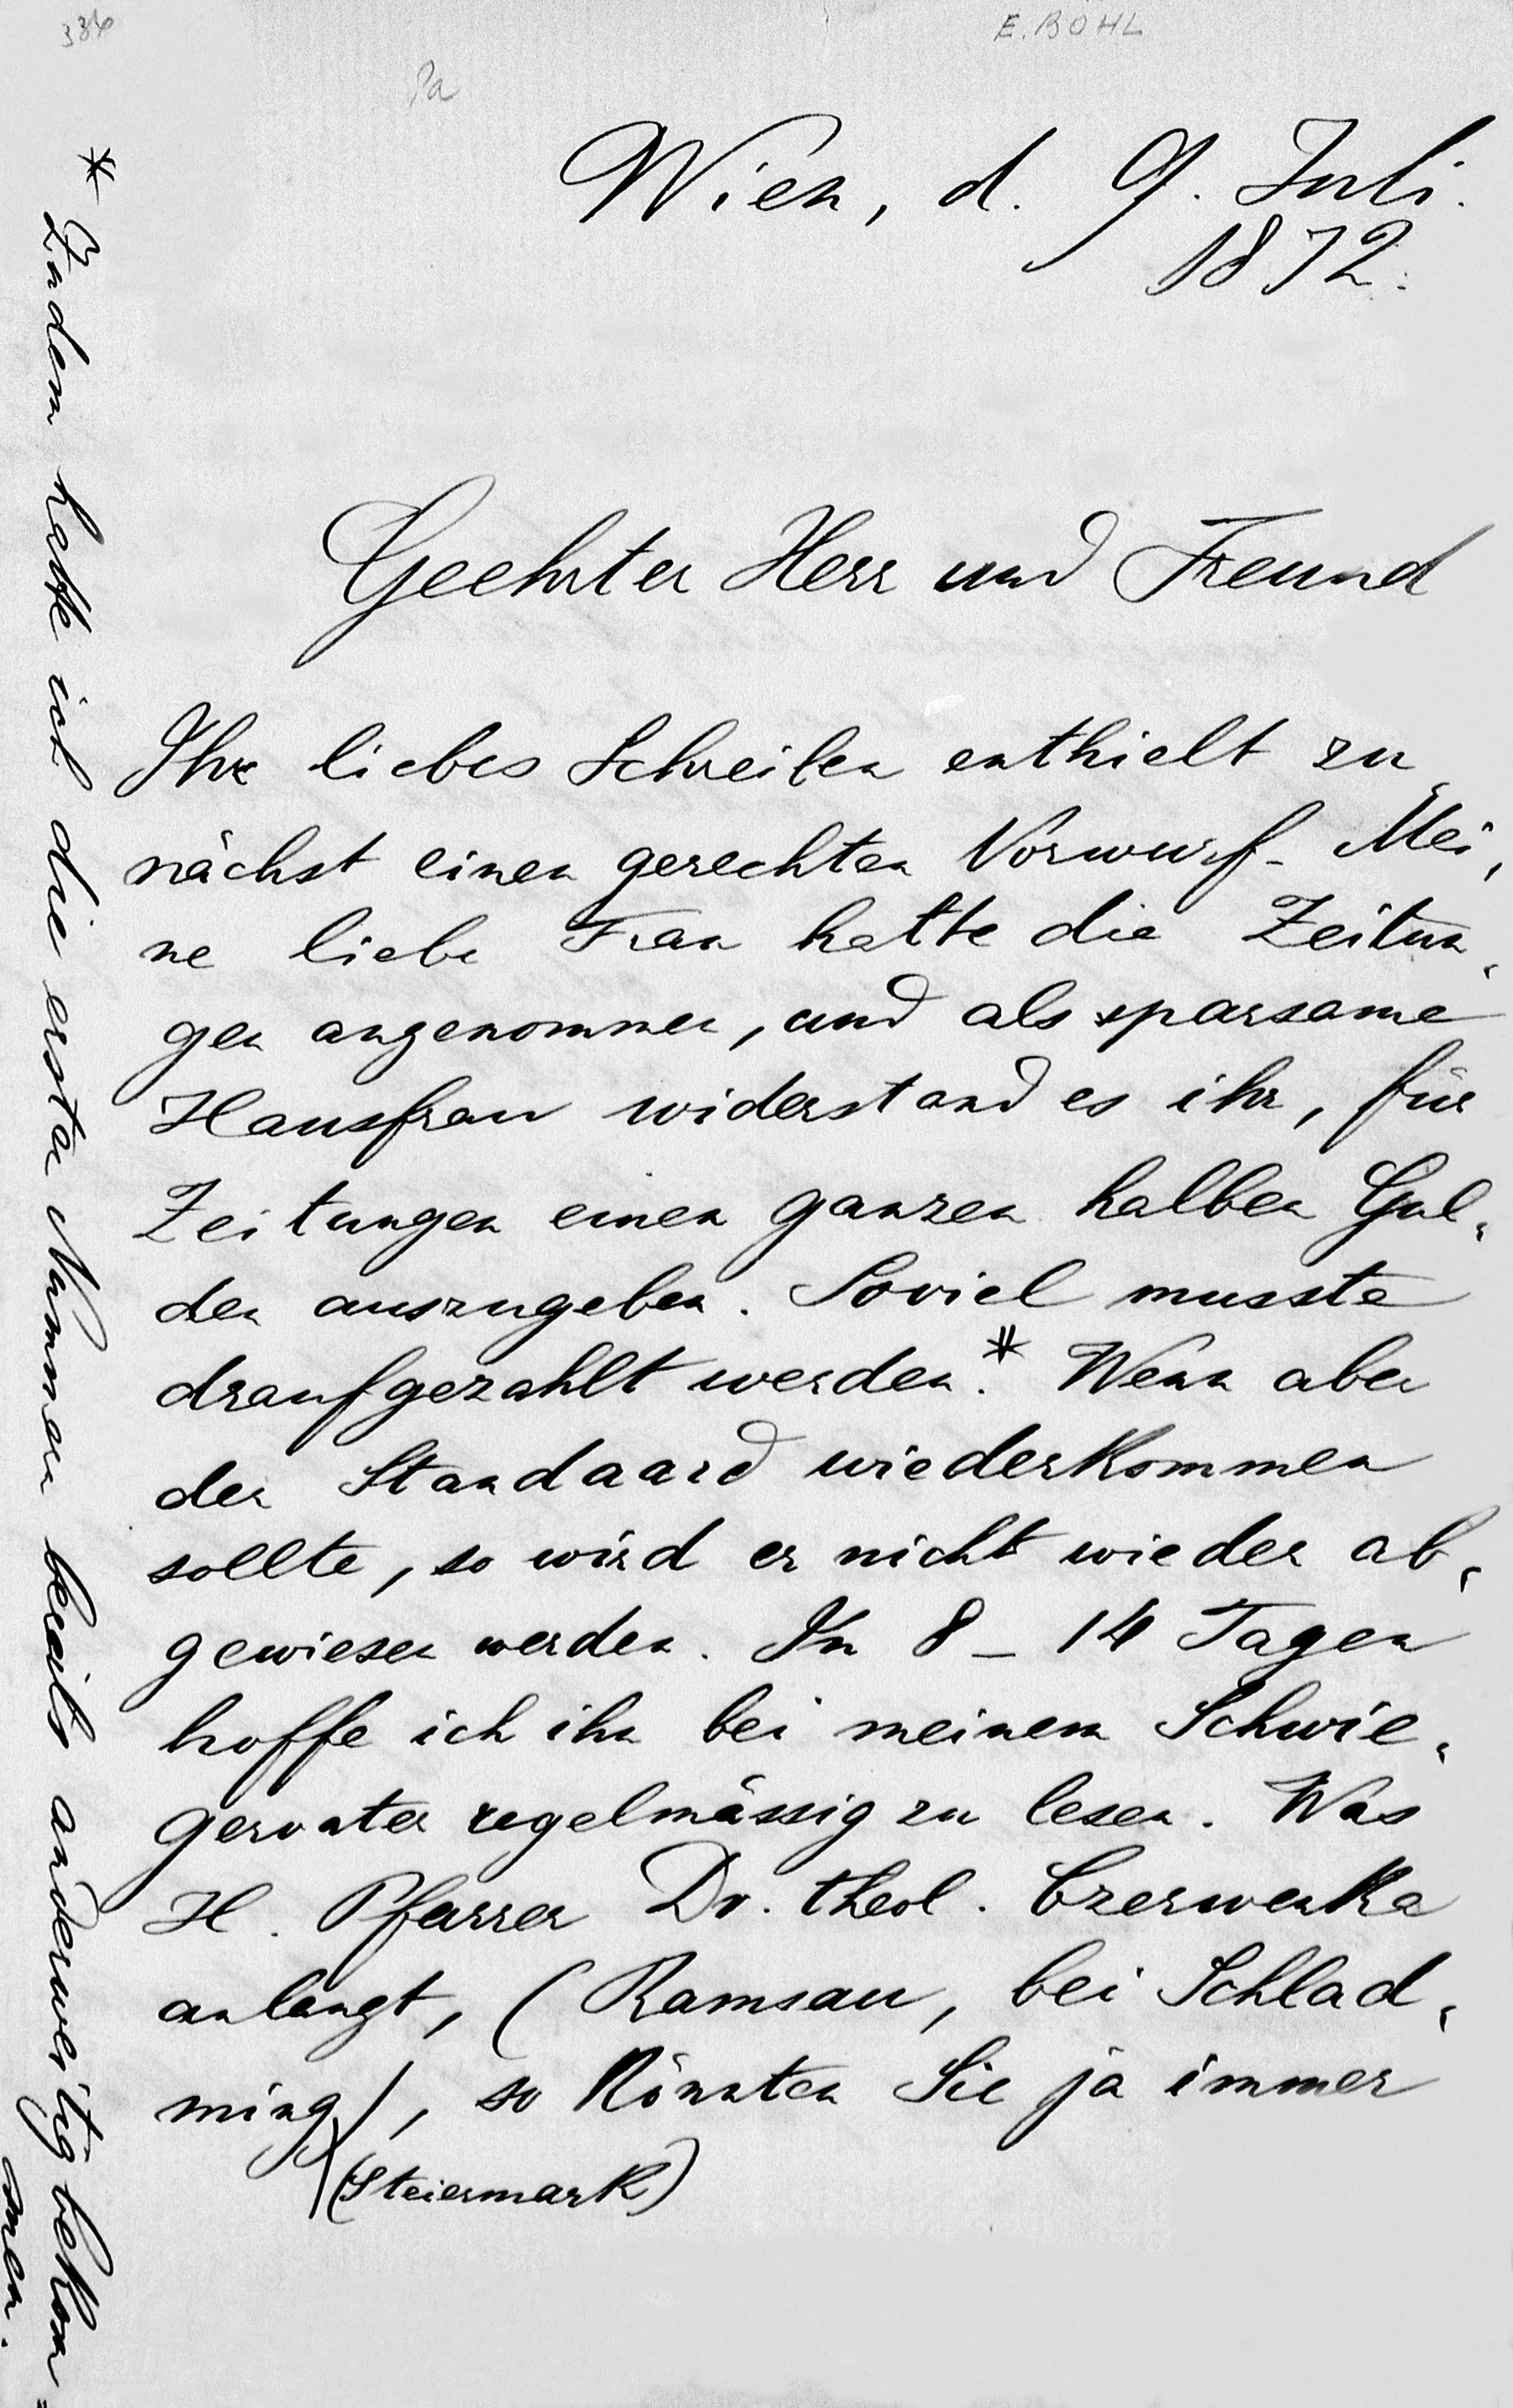 E. BÖHL
Wien, d. 9. Juli.
1872.
Geehrter Herr und Freund
Ihr liebes Schreiben enthielt zu-
nächst einen gerechten Vorwurf. Mei-
ne liebe Frau hatte die Zeitun-
gen angenommen, und als sparsame
Hausfrau widerstand es ihr, für
Zeitungen einen ganzen halben Gul-
den auszugeben. Soviel musste
draufgezahlt werden.* Wenn aber
der Standaard wiederkommen
sollte, so wird er nicht wieder ab-
gewiesen werden. In 8 – 14 Tagen
hoffe ich ihn bei meinem Schwie-
gervater regelmässig zu lesen. Was
H. Pfarrer Dr. theol. Czerwenka
anlangt, (Ramsau, bei Schlad-
ming), so könnten Sie ja immer
(Steiermark)
* Zudem hatte ich die ersten Nummern bereits anderweitig bekom=
men.